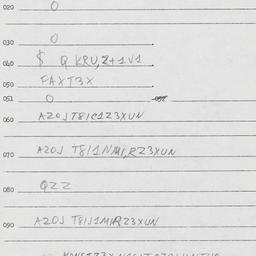 020 0
030 0
040 $ Q KRU,Z+1V1
050 FAXT3X
051 0
060 AZOJ T8IC1Z3XUN
070 AZOJ T8I1NMI,RZ3XUN
080 QZZ
090 AZOJ T8IJ1MIRZ3XUN